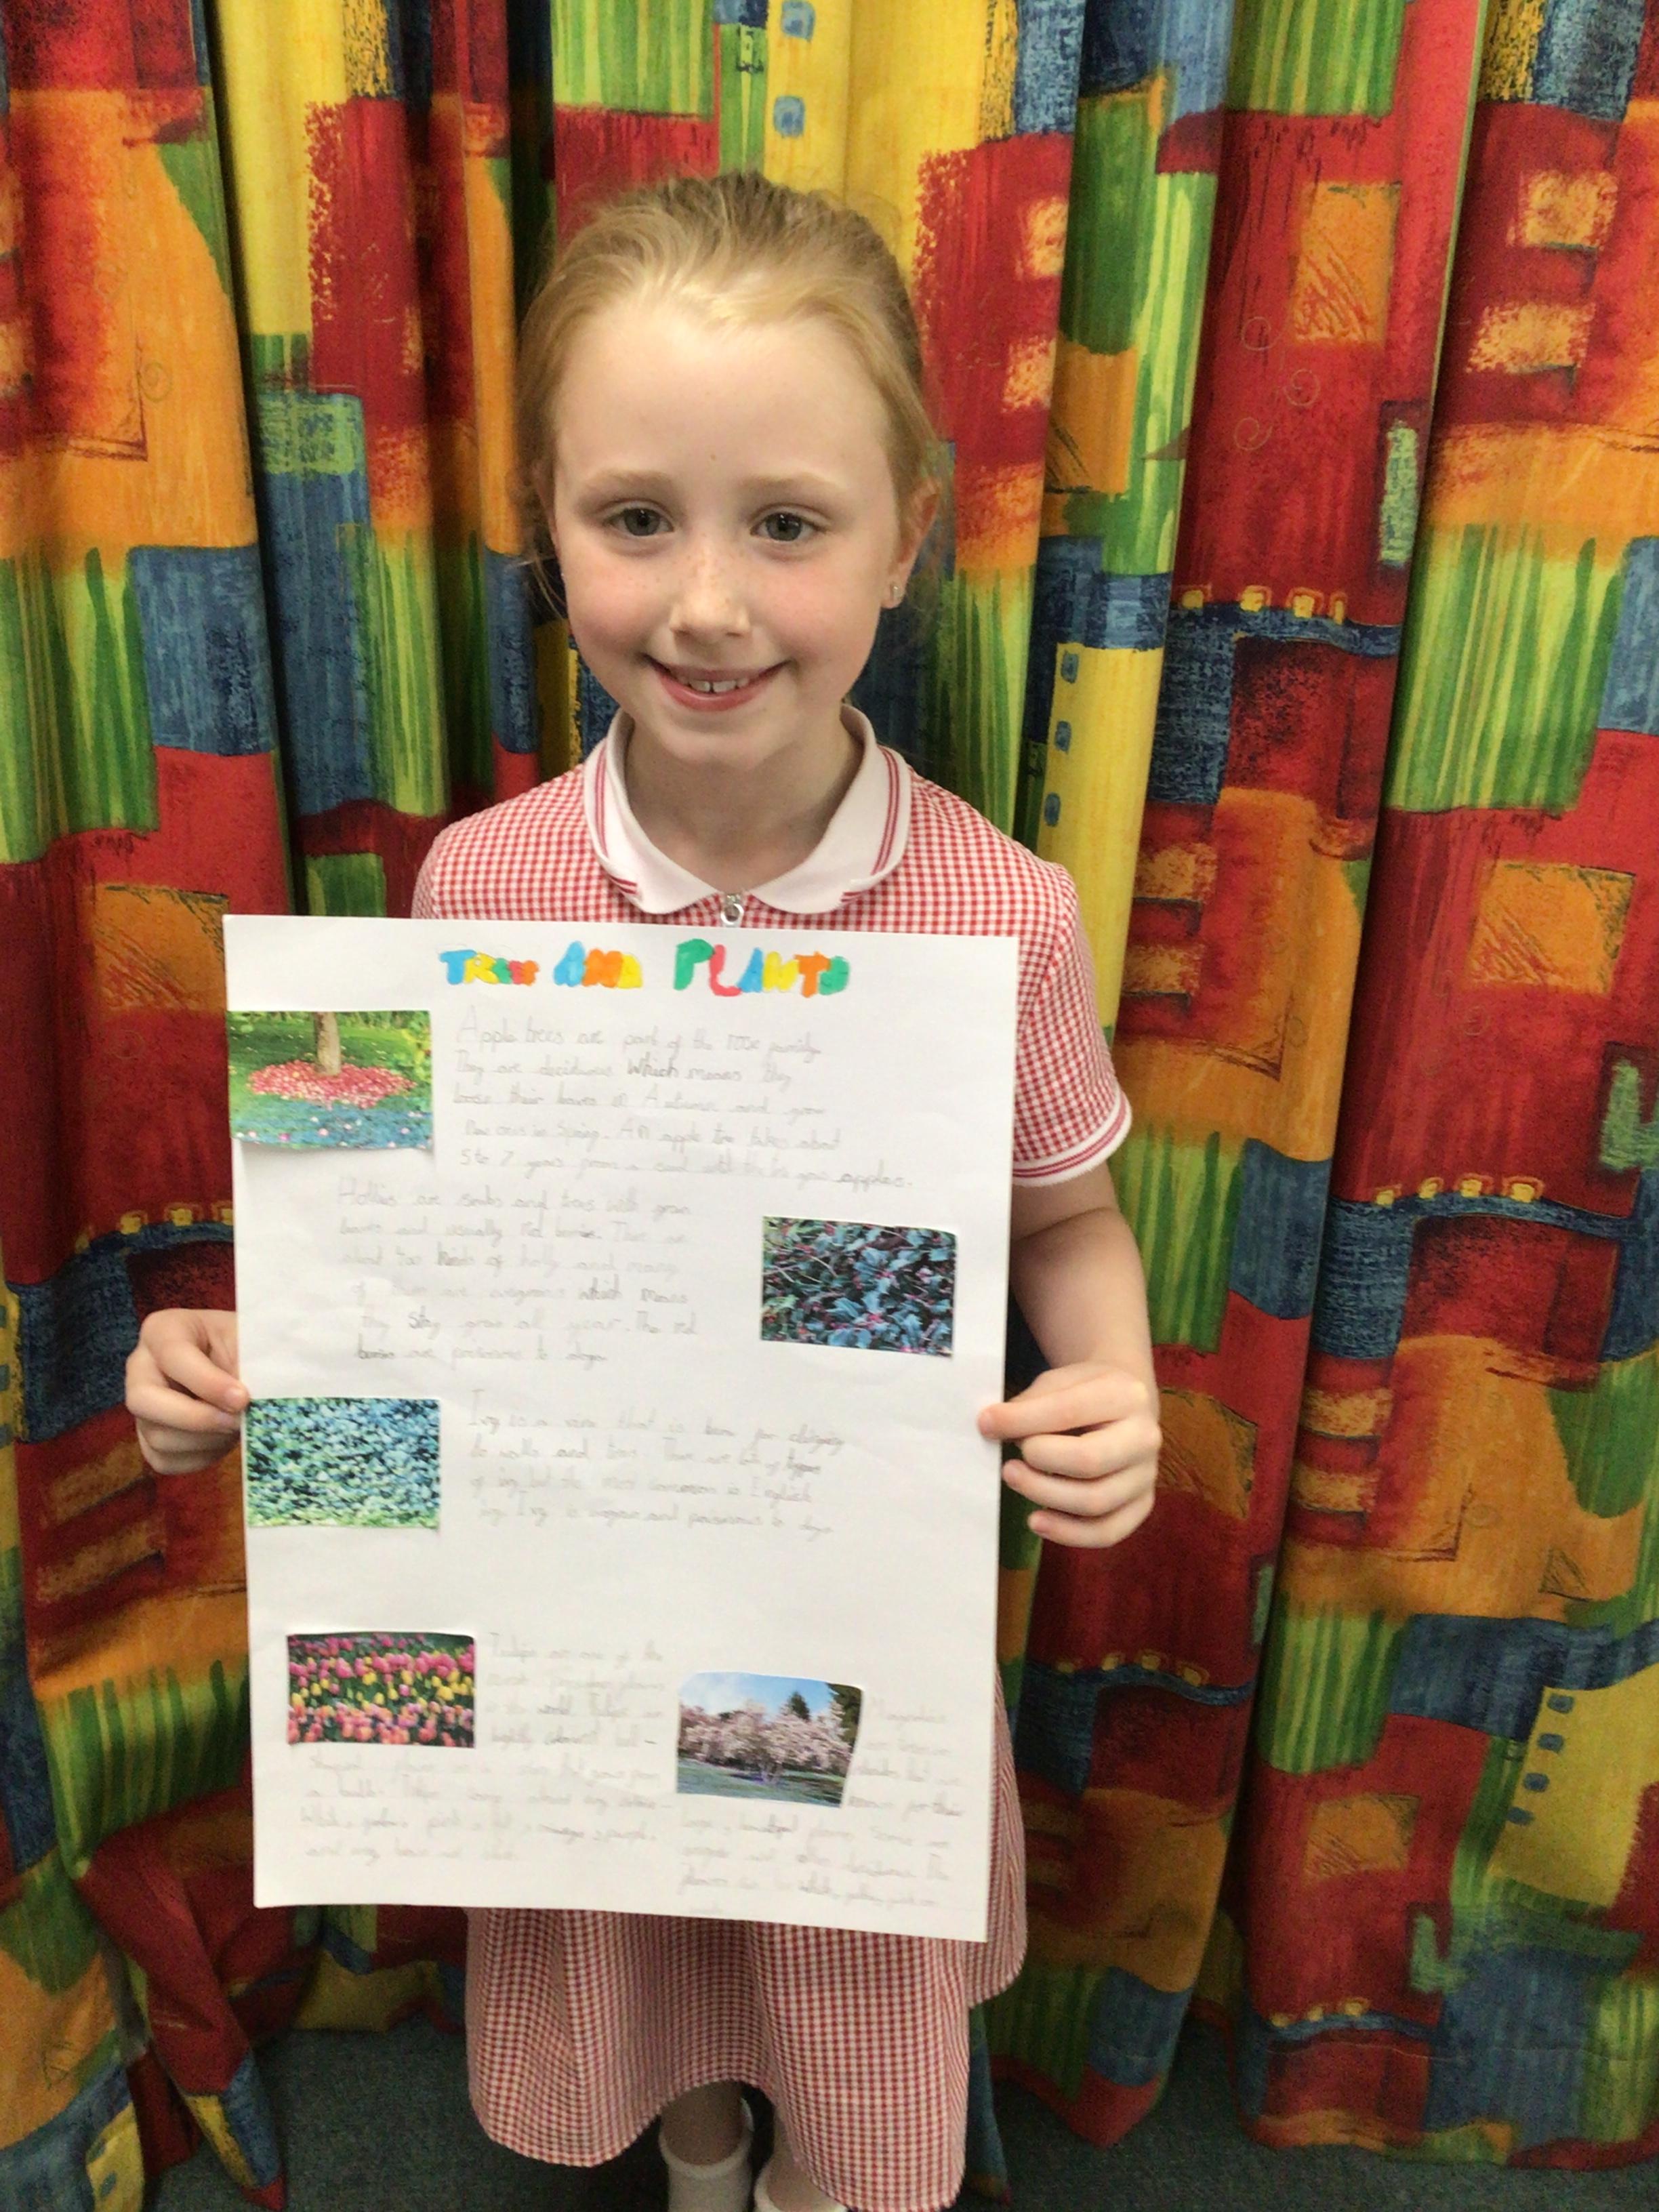 TREES AND PLANTS
Apple trees are part of the rose family.
They are deciduous which means they
loose their leaves in Autumn and grow
new ones in Spring. An apple tree takes about
5 to 7 years from a seed until the tree grows apples.
Hollies are and trees with green
leaves and usually red berries. There are
about kinds of holly and many
of them are which means
they stay green all year. The red
berries are poisonous to dogs.
Ivy is a vine that is for clinging
to walls and trees. There are lots of types
of ivy, but the most common is English
ivy. Ivy is and poisonous to dogs.
Tulips are one of the
most plants
in the world. Tulips are
brightly coloured bell-
shaped that grow from
a bulb. Tulips
White, pink, red, orange, purple,
and
Magnolias
are
that are
known for their
large, flowers. Some are
and others The
flowers can be white, yellow, pink or